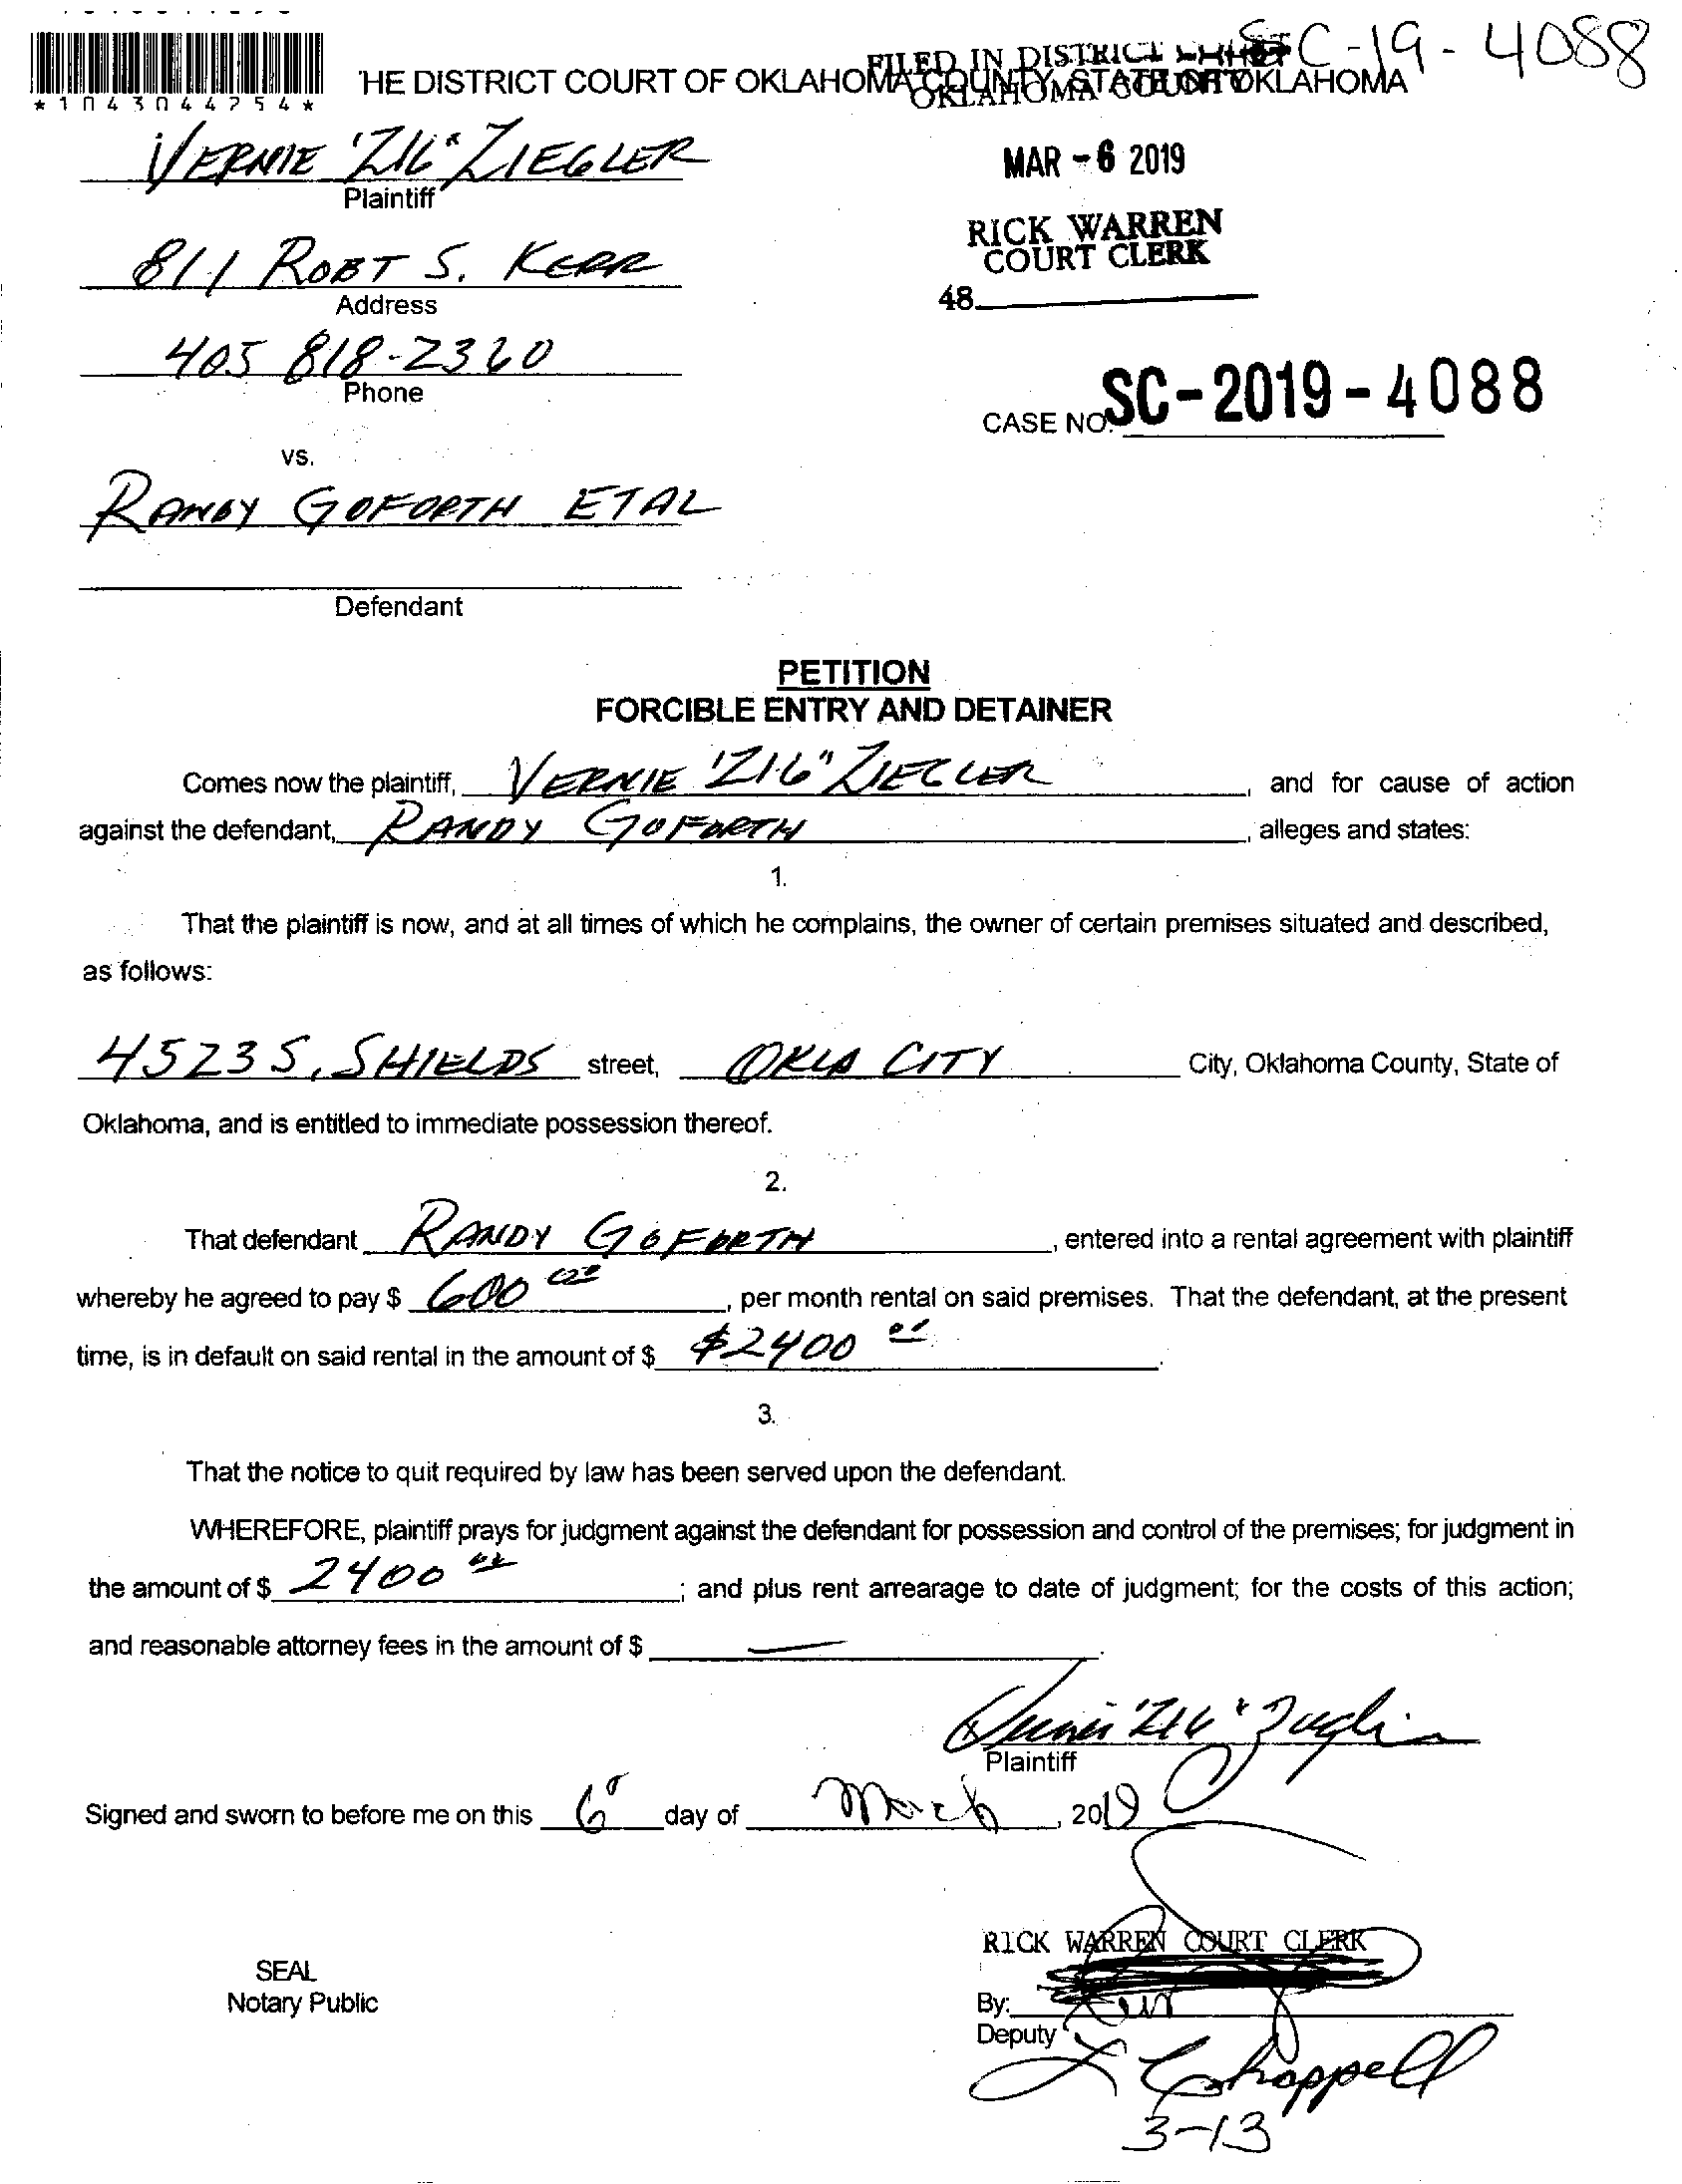 SC-19-4088
FILED IN DISTRICT COURT
OKLAHOMA COUNTY
*1043044254*
HE DISTRICT COURT OF OKLAHOMA COUNTY, STATE OF OKLAHOMA
VERNIE "ZIG" ZIEGLER
Plaintiff
MAR - 6 2019
RICK WARREN
COURT CLERK
48
811 ROBT S. KERR
Address
405 818-2360
Phone
CASE NO. SC-2019-4088
vs.
RANDY GOFORTH ETAL
Defendant
PETITION
FORCIBLE ENTRY AND DETAINER
Comes now the plaintiff, VERNIE "ZIG" ZIEGLER, and for cause of action
against the defendant, RANDY GOFORTH, alleges and states:
1.
That the plaintiff is now, and at all times of which he complains, the owner of certain premises situated and described,
as follows:
4523 S. SHIELDS street, OKLA CITY City, Oklahoma County, State of
Oklahoma, and is entitled to immediate possession thereof.
2.
That defendant RANDY GOFORTH, entered into a rental agreement with plaintiff
whereby he agreed to pay $ 600 00, per month rental on said premises. That the defendant, at the present
time, is in default on said rental in the amount of $ $2400 00.
3.
That the notice to quit required by law has been served upon the defendant.
WHEREFORE, plaintiff prays for judgment against the defendant for possession and control of the premises; for judgment in
the amount of $ 2400 00; and plus rent arrearage to date of judgment; for the costs of this action;
and reasonable attorney fees in the amount of $ —.
Vernie "ZIG" Ziegler
Plaintiff
Signed and sworn to before me on this 6 day of March, 2019
RICK WARREN COURT CLERK
SEAL
Notary Public
By:
Deputy
L Chappell
3-13